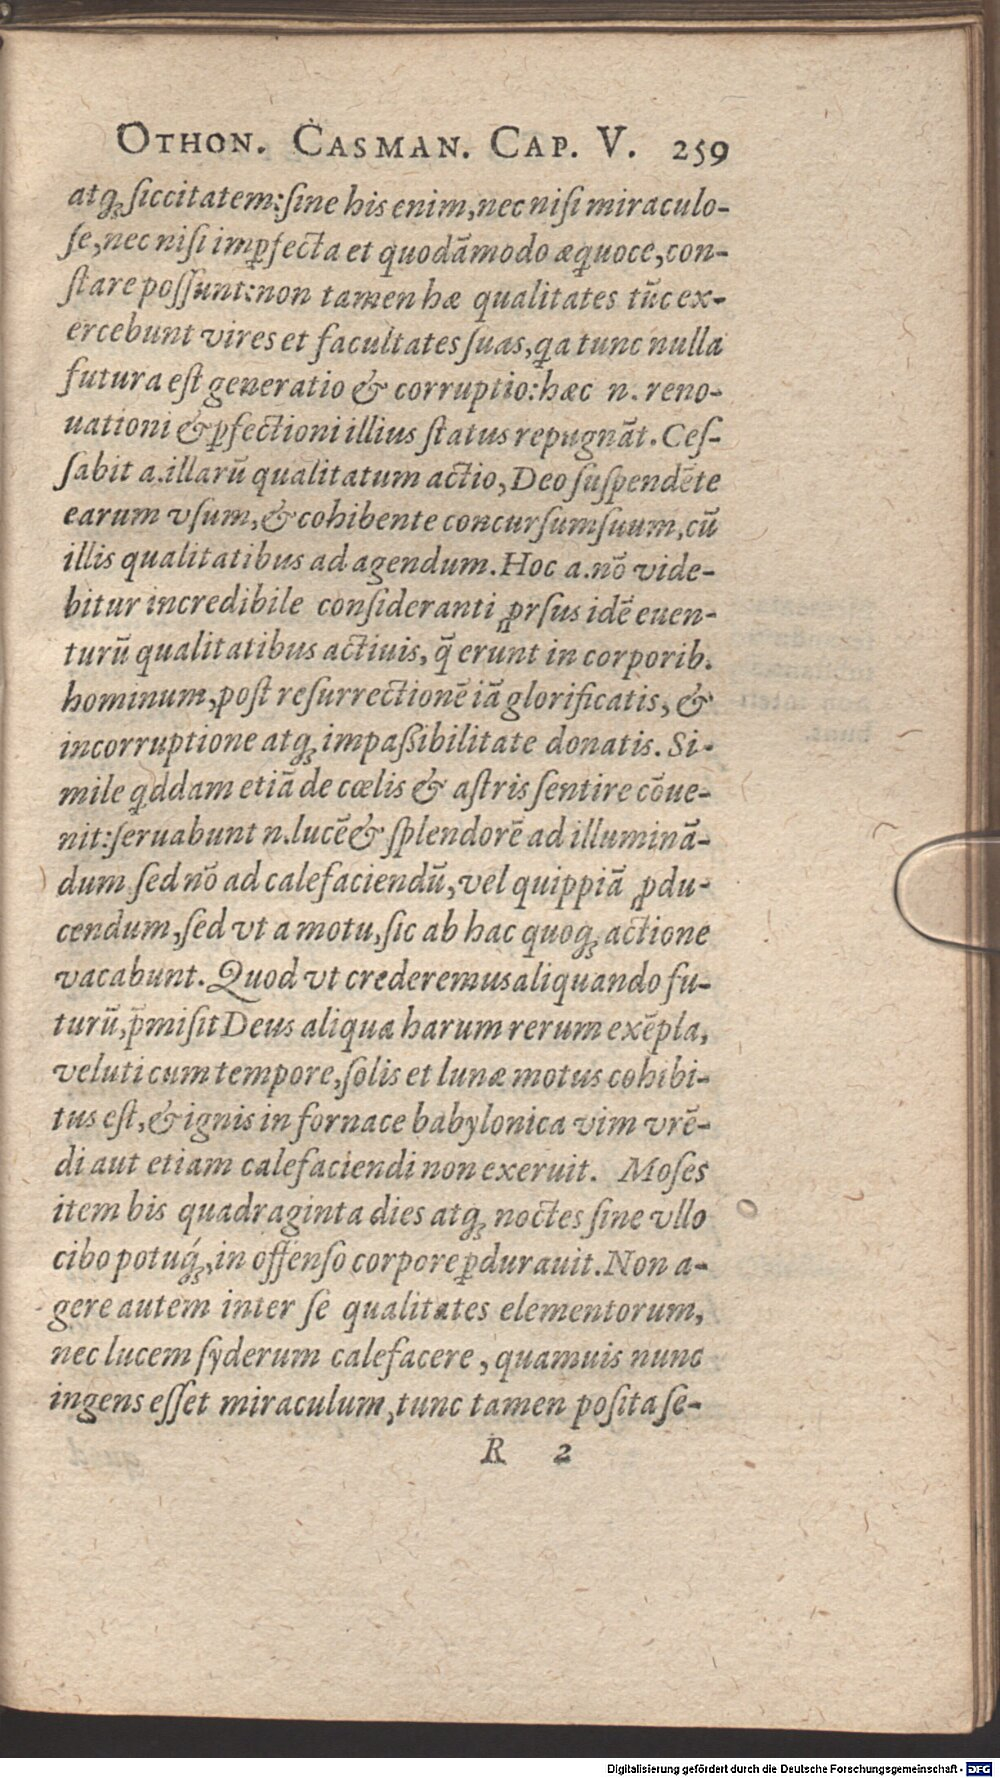 OTHON. CASMAN. CAP. V. 259
atqꝫ ſiccitatem: ſine his enim, nec niſi miraculo-
ſe, nec niſi imꝑfecta et quodāmodo æquoce, con-
ſtare poſſunt: non tamen hæ qualitates tūc ex-
ercebunt vires et facultates ſuas, qa tunc nulla
futura eſt generatio & corruptio: hæc n. reno-
uationi & ꝑfectioni illius ſtatus repugnāt. Ceſ-
ſabit a. illarū qualitatum actio, Deo ſuſpendēte
earum vſum, & cohibente concurſum ſuum, cū
illis qualitatibus ad agendum. Hoc a. nō vide-
bitur incredibile conſideranti ꝓrſus idē euen-
turū qualitatibus actiuis, q̄ erunt in corporib.
hominum, poſt reſurrectionē iā glorificatis, &
incorruptione atqꝫ impaßibilitate donatis. Si-
mile qddam etiā de cœlis & aſtris ſentire cōue-
nit: ſeruabunt n. lucē & ſplendorē ad illuminā-
dum ſed nō ad calefaciendū, vel quippiā ꝓdu-
cendum, ſed vt a motu, ſic ab hac quoqꝫ actione
vacabunt. Quod vt crederemus aliquando fu-
turū, p̄miſit Deus aliqua harum rerum exēpla,
veluti cum tempore, ſolis et lunæ motus cohibi-
tus eſt, & ignis in fornace babylonica vim vrē-
di aut etiam calefaciendi non exeruit. Moſes
item bis quadraginta dies atqꝫ noctes ſine vllo
cibo potuqꝫ́, in offenſo corpore ꝑdurauit. Non a-
gere autem inter ſe qualitates elementorum,
nec lucem ſyderum calefacere, quamuis nunc
ingens eſſet miraculum, tunc tamen poſita ſe-
R 2
Digitalisierung gefördert durch die Deutsche Forschungsgemeinschaft - DFG